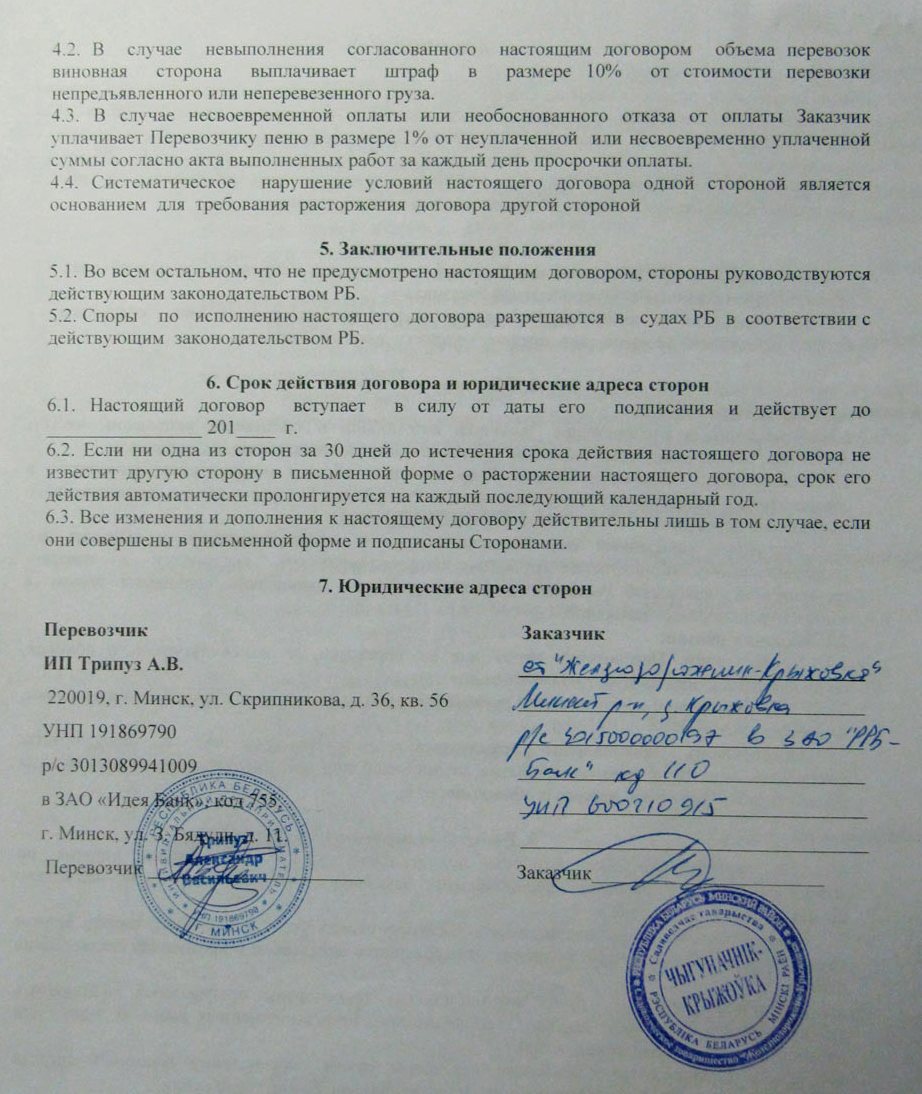 4.2. В случае невыполнения согласованного настоящим договором объема перевозок
виновная сторона выплачивает штраф в размере 10% от стоимости перевозки
непредъявленного или неперевезенного груза.
4.3. В случае несвоевременной оплаты или необоснованного отказа от оплаты Заказчик
уплачивает Перевозчику пеню в размере 1% от неуплаченной или несвоевременно уплаченной
суммы согласно акта выполненных работ за каждый день просрочки оплаты.
4.4. Систематическое нарушение условий настоящего договора одной стороной является
основанием для требования расторжения договора другой стороной
5. Заключительные положения
5.1. Во всем остальном, что не предусмотрено настоящим договором, стороны руководствуются
действующим законодательством РБ.
5.2. Споры по исполнению настоящего договора разрешаются в судах РБ в соответствии с
действующим законодательством РБ.
6. Срок действия договора и юридические адреса сторон
6.1. Настоящий договор вступает в силу от даты его подписания и действует до
________________ 201____ г.
6.2. Если ни одна из сторон за 30 дней до истечения срока действия настоящего договора не
известит другую сторону в письменной форме о расторжении настоящего договора, срок его
действия автоматически пролонгируется на каждый последующий календарный год.
6.3. Все изменения и дополнения к настоящему договору действительны лишь в том случае, если
они совершены в письменной форме и подписаны Сторонами.
7. Юридические адреса сторон
Перевозчик
ИП Трипуз А.В.
220019, г. Минск, ул. Скрипникова, д. 36, кв. 56
УНП 191869790
р/с 3013089941009
в ЗАО «Идея Банк», код 755,
г. Минск, ул. З. Бядули, д. 11.
Перевозчик
РЕСПУБЛИКА БЕЛАРУСЬ
ИНДИВИДУАЛЬНЫЙ ПРЕДПРИНИМАТЕЛЬ
Трипуз
Александр
Васильевич
УНП 191869790
Г. МИНСК
Заказчик
ст "Железнодорожник-Крыжовка"
Минский р-н, д Крыжовка
р/с 3015000000197 в ЗАО "РРБ-
Банк" код 110
УНП 600210915
Заказчик
РЕСПУБЛИКА БЕЛАРУСЬ МИНСКИЙ РАЙОН
Садоводческое товарищество "Железнодорожник-Крыжовка"
Садаводчае таварыства
ЧЫГУНАЧНІК-
КРЫЖОЎКА
РЭСПУБЛІКА БЕЛАРУСЬ МІНСКІ РАЁН